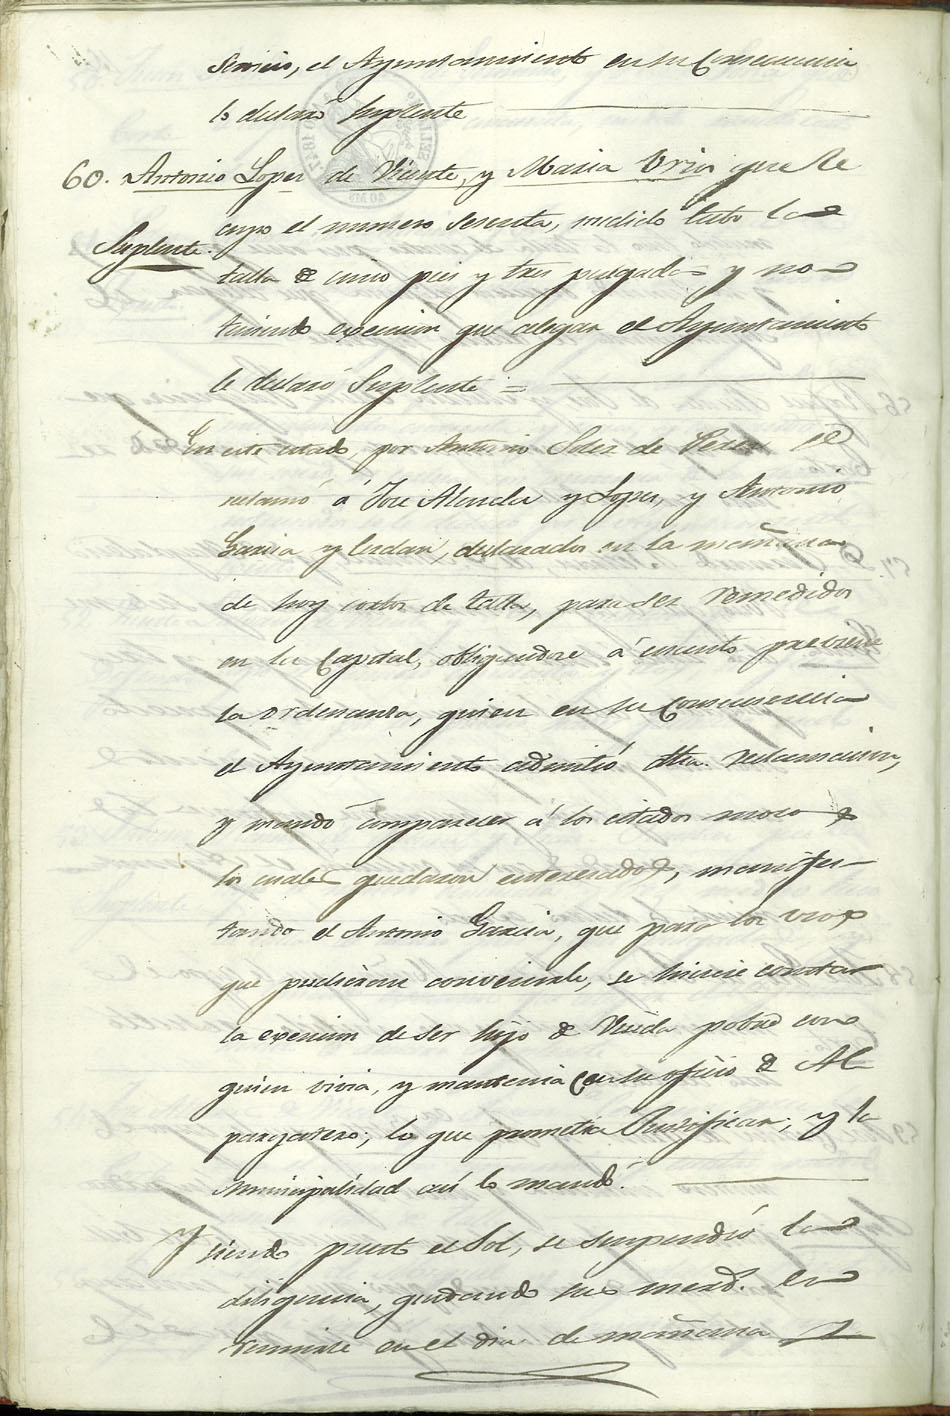 servicio, el Ayuntamiento en su Consecuencia
lo declaró Suplente
60. Antonio Lopez de Vicente, y Maria que le
cupo el numero sesenta, medido tubo la
Suplente.
talla de cinco pies y tres pulgadas y no
teniendo exencion que alegar el Ayuntamiento
le declaró Suplente =
En este estado, por Antonio Soler de se
reclamó á Jose Alenda y Lopez, y Antonio
Garcia y Cerdan, declarados en la mañana
de hoy cortos de talla, para ser remedidos
en la Capital, obligandose á cuanto previene
la ordenanza, quien en su Consecuencia
el Ayuntamiento admitió dha. reclamacion,
y mandó comparecer á los citados mozos
los cuales quedaron enterados, manifes-
tando el Antonio Garcia, que para los usos
que pudieran convenirle, se hiciese constar
la exencion de ser hijo de Viuda pobre con
quien vivia, y mantenia con su oficio de Al-
pargatero; lo que prometia Justificar; y la
Municipalidad asi lo mandó.
Y siendo puesto el Sol, se suspendió la
diligencia, quedando sus merd. en
reunirse en el dia de mañana